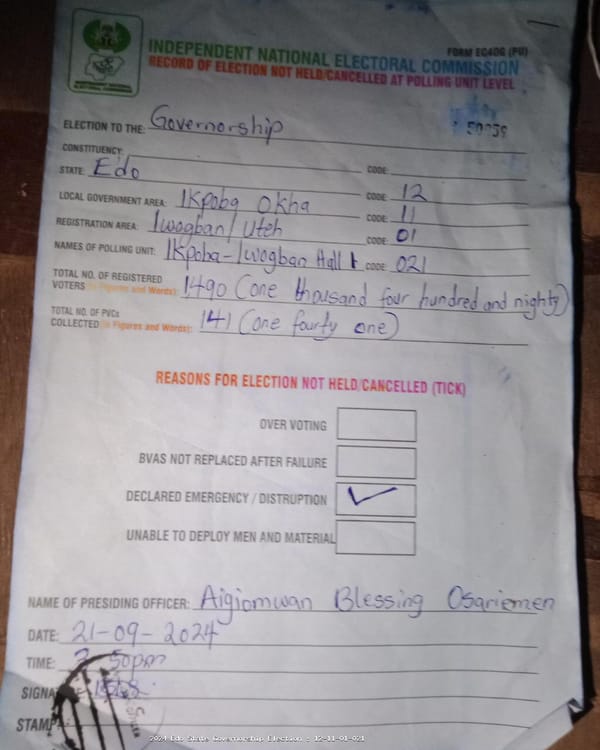 INDEPENDENT NATIONAL ELECTORAL COMMISSION
FORM EC40G (PU)
RECORD OF ELECTION NOT HELD/CANCELLED AT POLLING UNIT LEVEL
ELECTION TO THE: Governorship
CONSTITUENCY: CODE:
STATE: Edo CODE: 12
LOCAL GOVERNMENT AREA: Ikpoba Okha CODE: 11
REGISTRATION AREA: Iwogban/Uteh CODE: 01
NAMES OF POLLING UNIT: Ikpoba-Iwogban Hall 1 CODE: 021
TOTAL NO. OF REGISTERED
VOTERS (In Figures and Words): 1490 (one thousand four hundred and nighty)
TOTAL NO. OF PVCs
COLLECTED (In Figures and Words): 141 (one fourty one)
REASONS FOR ELECTION NOT HELD/CANCELLED (TICK)
OVER VOTING
BVAS NOT REPLACED AFTER FAILURE
DECLARED EMERGENCY / DISTRUPTION
UNABLE TO DEPLOY MEN AND MATERIAL
NAME OF PRESIDING OFFICER: Aigiomwan Blessing Osariemen
DATE: 21-09-2024
TIME: 50pm
STAMP
2024 Edo State Governorship Election - 12-11-01-021